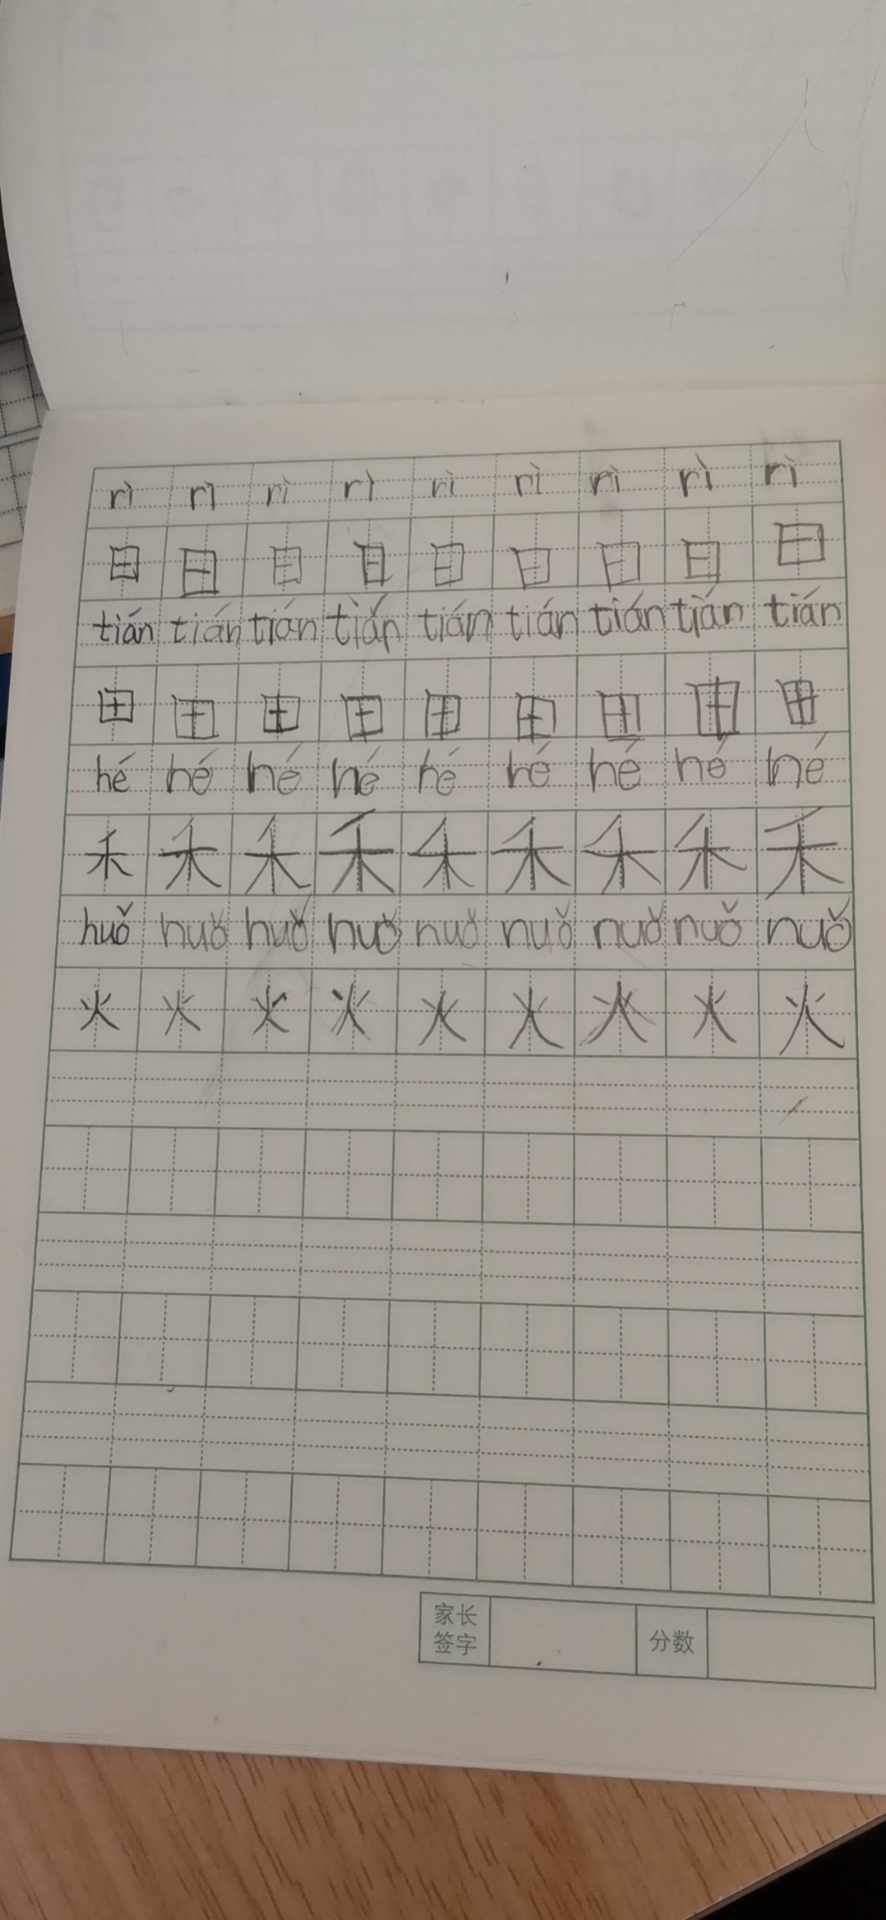 rì rì rì rì rì rì rì rì rì
日 日 日 日 日 日 日 日 日
tián tián tián tián tián tián tián tián tián
田 田 田 田 田 田 田 田 田
hé hé hé hé hé hé hé hé hé
禾 禾 禾 禾 禾 禾 禾 禾 禾
huǒ huǒ huǒ huǒ nuǒ nuǒ nuǒ nuǒ nuǒ
火 火 火 火 火 火 火 火 火
家长签字 分数